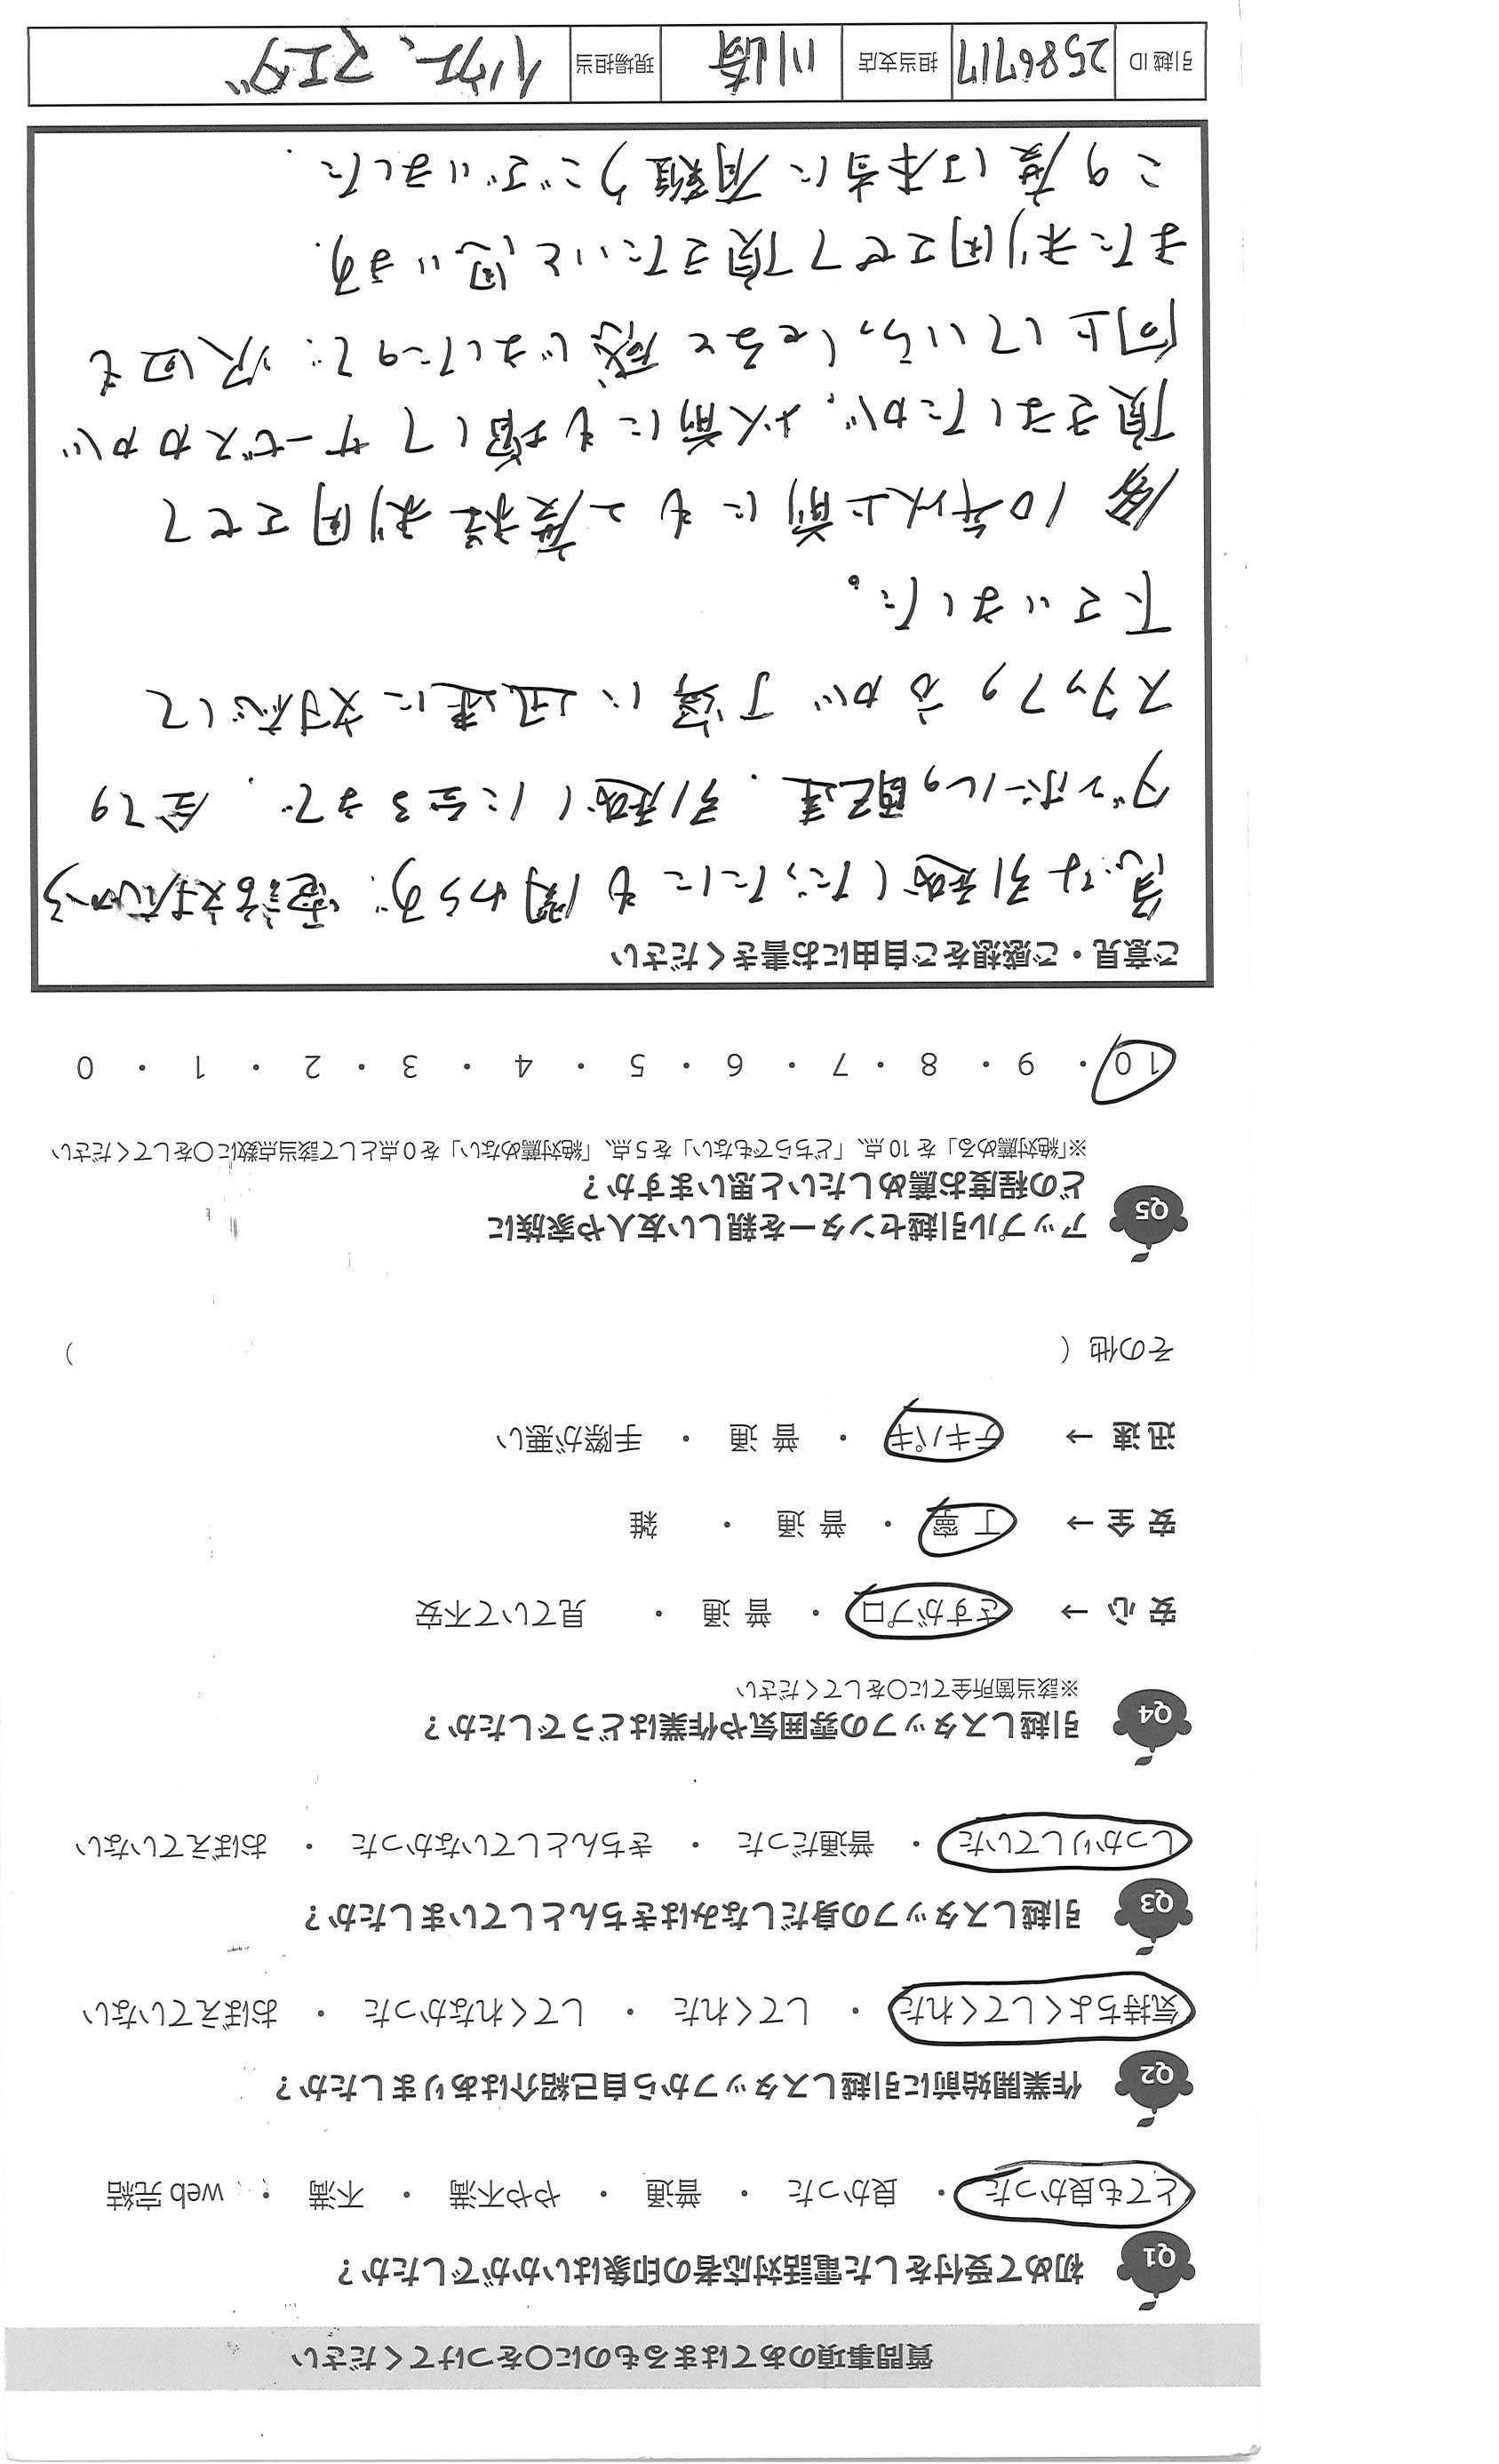 質問事項のあてはまるものに○をつけてください
Q1 初めて受付をした電話対応者の印象はいかがでしたか?
とても良かった ・ 良かった ・ 普通 ・ やや不満 ・ 不満 ・ web 完結
Q2 作業開始前に引越しスタッフから自己紹介はありましたか?
気持ちよくしてくれた ・ してくれた ・ してくれなかった ・ おぼえていない
Q3 引越しスタッフの身だしなみはきちんとしていましたか?
しっかりしていた ・ 普通だった ・ きちんとしていなかった ・ おぼえていない
Q4 引越しスタッフの雰囲気や作業はどうでしたか?
※該当箇所全てに○をしてください
安心 → さすがプロ ・ 普通 ・ 見ていて不安
安全 → 丁寧 ・ 普通 ・ 雑
迅速 → テキパキ ・ 普通 ・ 手際が悪い
その他 ( )
Q5 アップル引越センターを親しい友人や家族に
どの程度お薦めしたいと思いますか?
※「絶対薦める」を 10 点、「どちらでもない」を 5 点、「絶対薦めない」を 0 点として該当点数に○をしてください
10 ・ 9 ・ 8 ・ 7 ・ 6 ・ 5 ・ 4 ・ 3 ・ 2 ・ 1 ・ 0
ご意見・ご感想をご自由にお書きください
急な引越しだったにも関わらず、電話対応から
ダンボールの配達、引越しに至るまで、全ての
スタッフの方が丁寧に迅速に対応して
下さいました。
10年以上前にも2度程利用させて
頂きましたが、以前にも増してサービス力が
向上していらっしゃると感じましたので、次回も
また利用させて頂きたいと思います.
この度は本当に有難うございました.
引越 ID 2586717 担当支店 川崎 現場担当 マエダ